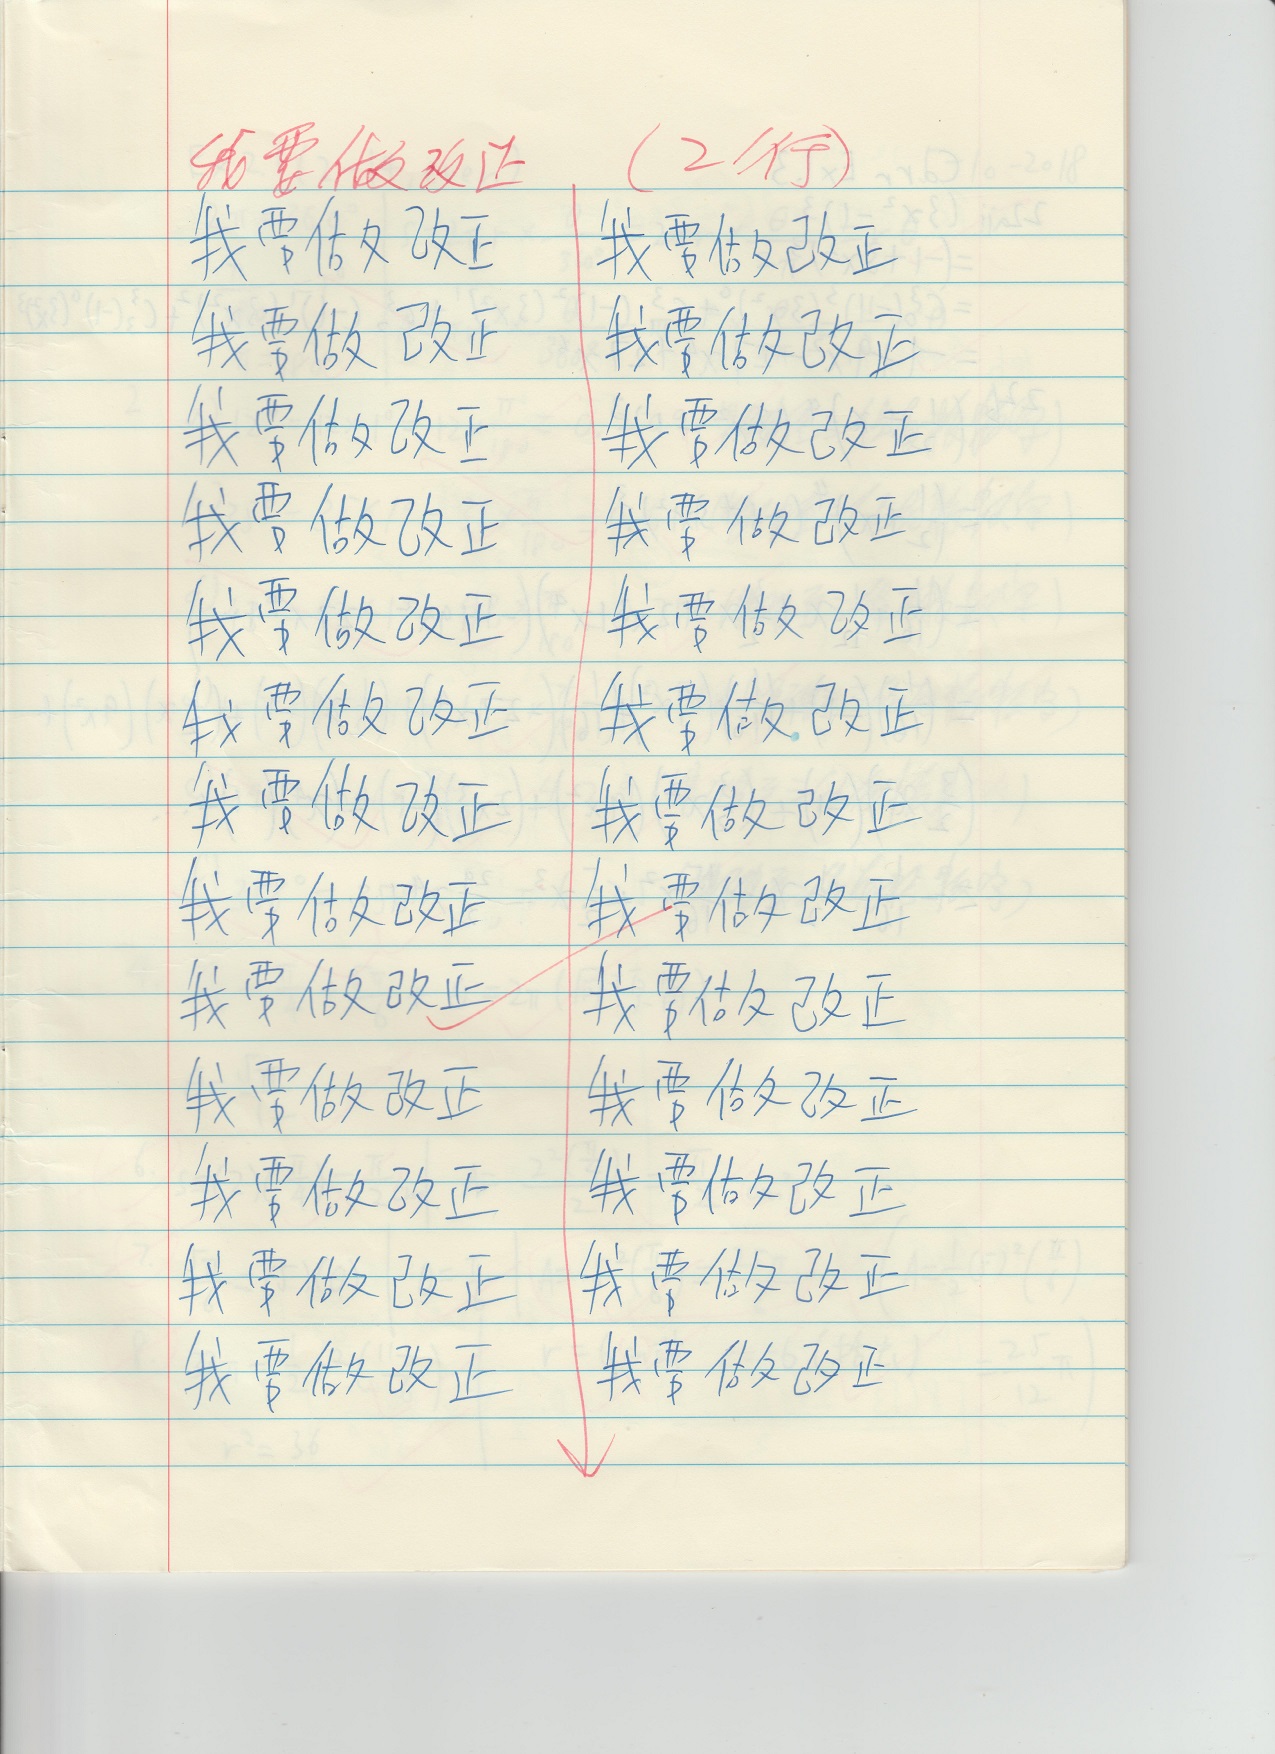 我要做改正 (2行)
我要做改正 我要做改正
我要做改正 我要做改正
我要做改正 我要做改正
我要做改正 我要做改正
我要做改正 我要做改正
我要做改正 我要做改正
我要做改正 我要做改正
我要做改正 我要做改正
我要做改正 我要做改正
我要做改正 我要做改正
我要做改正 我要做改正
我要做改正 我要做改正
我要做改正 我要做改正